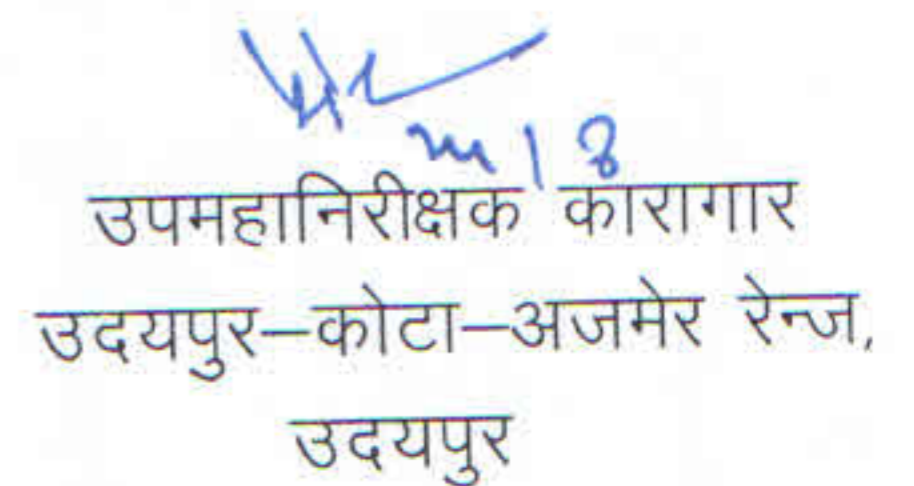 उपमहानिरीक्षक कारागार
उदयपुर–कोटा–अजमेर रेन्ज,
उदयपुर